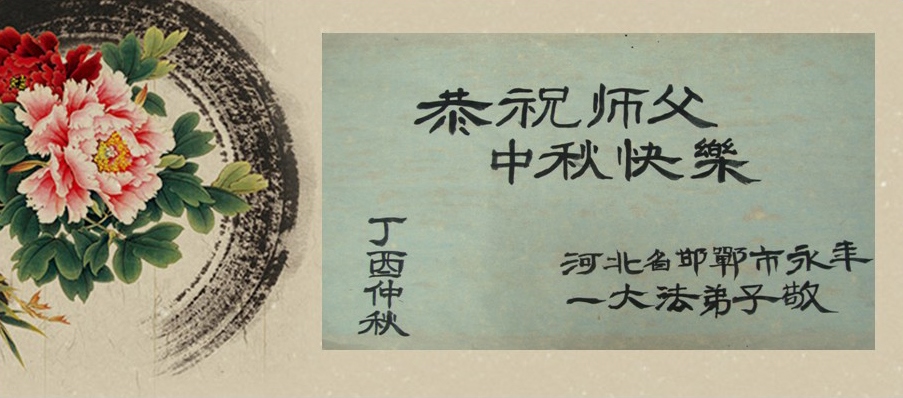 恭祝师父
中秋快樂
丁酉仲秋
河北省邯鄲市永年
一大法弟子敬